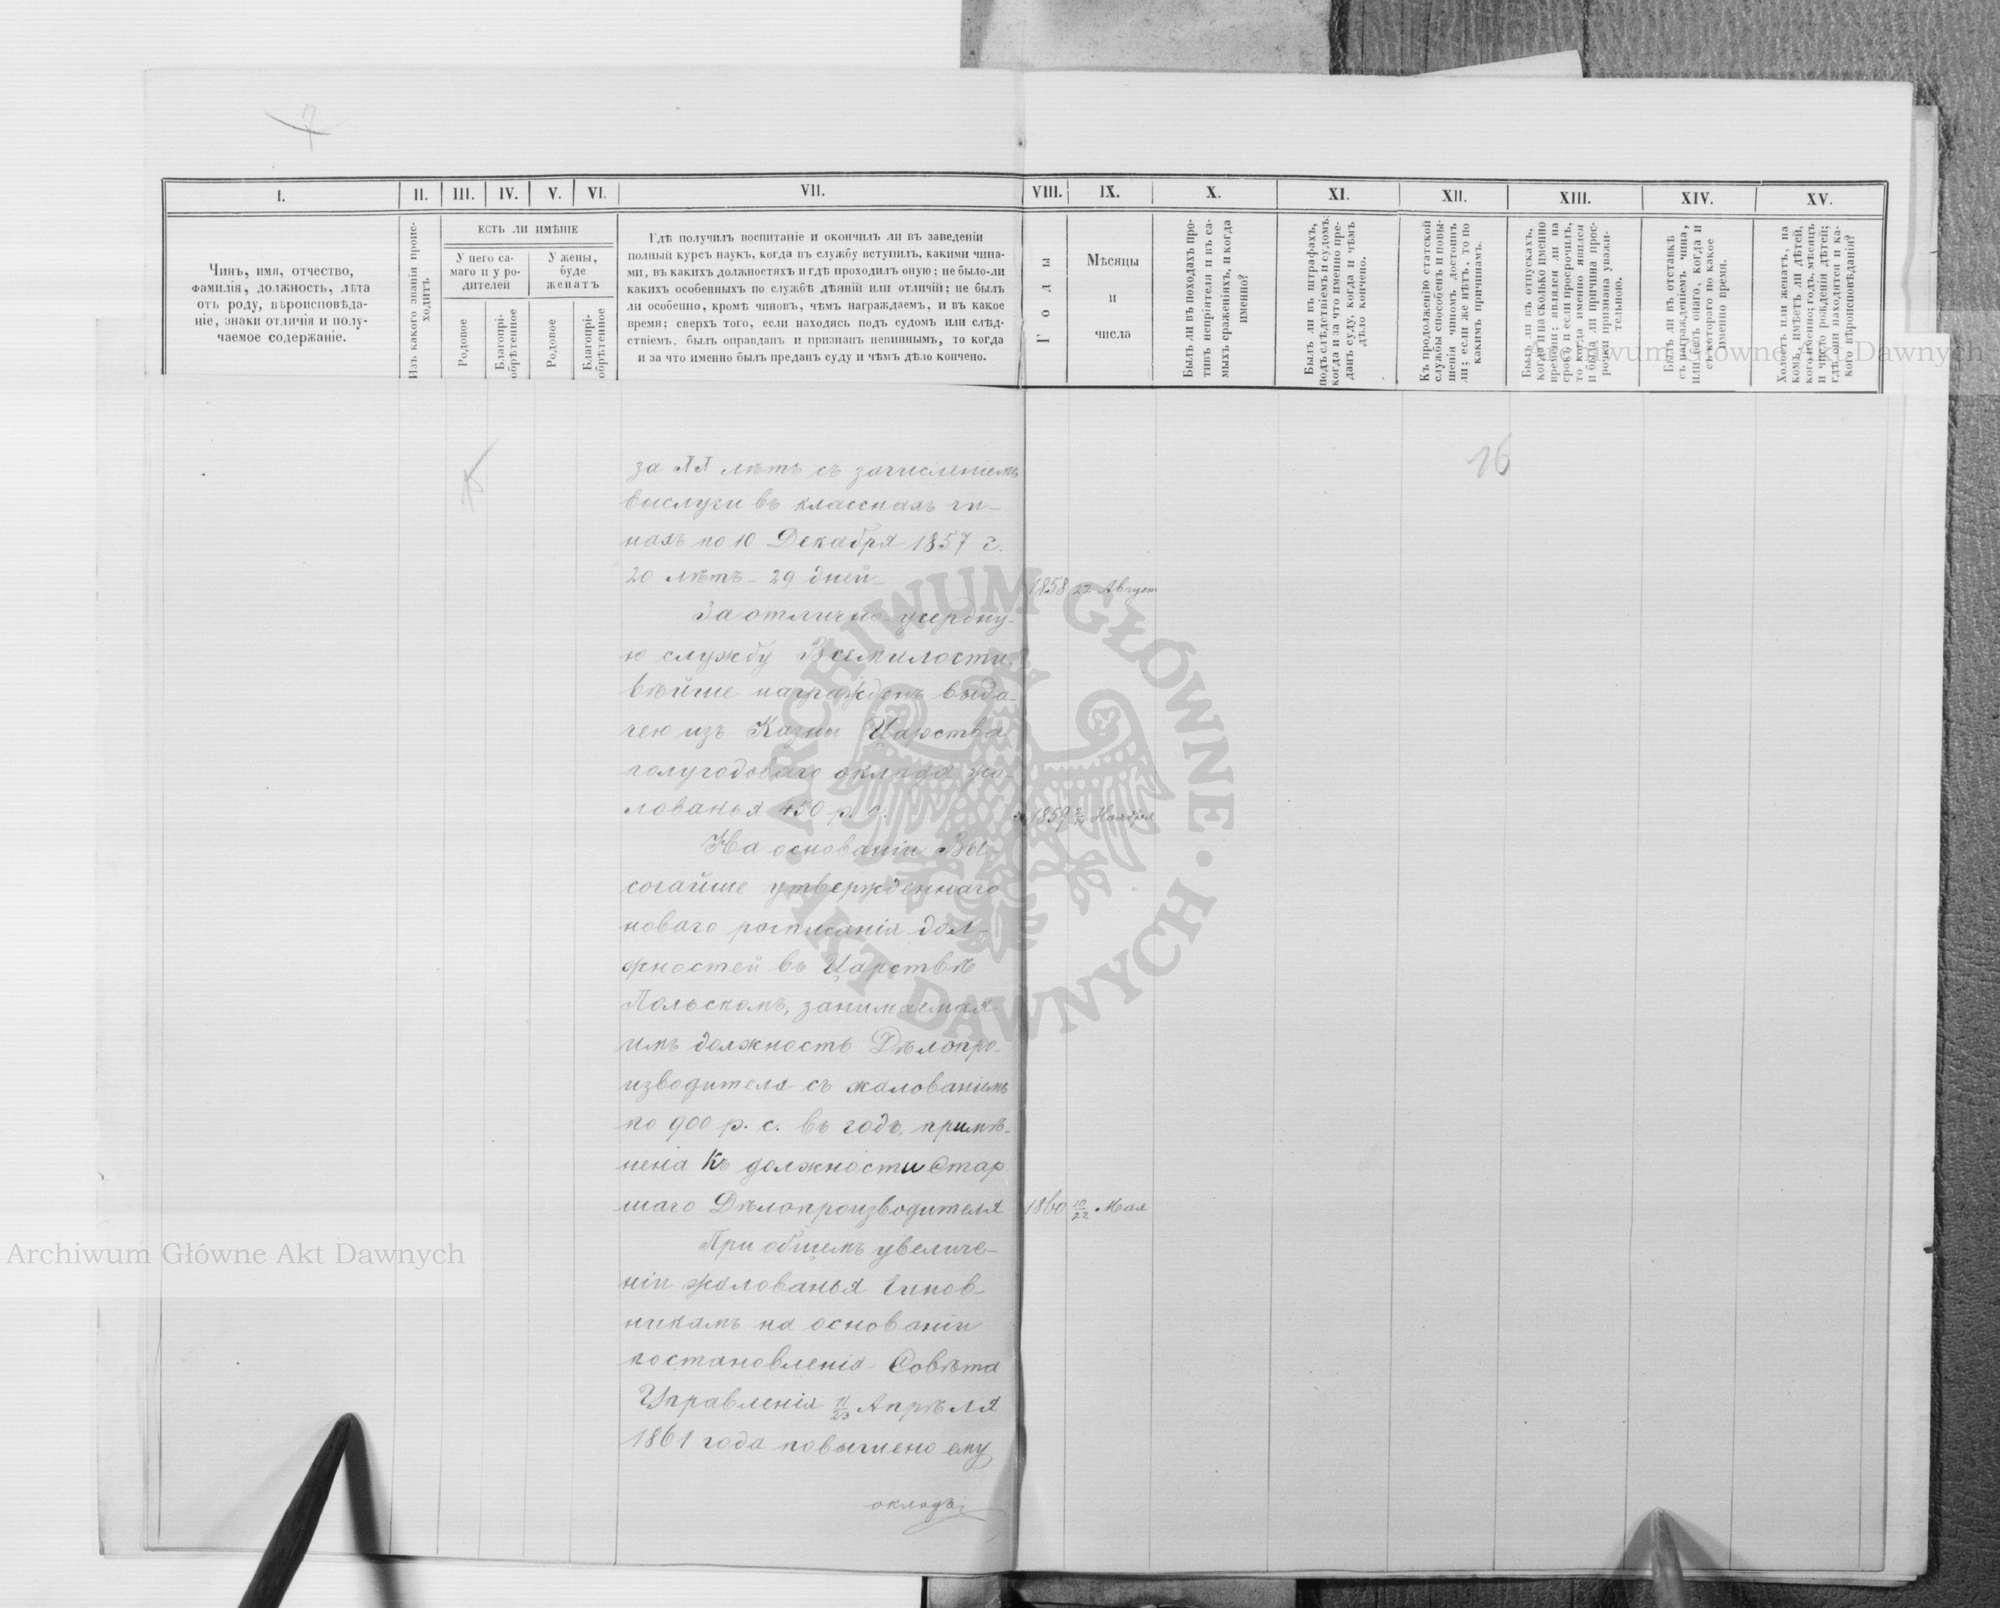 7
I.
II.
III.
IV.
V.
VI.
VII.
VIII.
IX.
X.
XI.
XII.
XIII.
XIV.
XV.
Чинъ, имя, отчество,
фамилія, должность, лѣта
отъ роду, вѣроисповѣда-
ніе, знаки отличія и полу-
чаемое содержаніе.
Изъ какого званія проис-
ходитъ
ЕСТЬ ЛИ ИМѢНІЕ
У него са-
маго и у ро-
дителей
У жены,
буде
женатъ
Родовое
Благопрі-
обрѣтенное
Родовое
Благопрі-
обрѣтенное
Гдѣ получилъ воспитаніе и окончилъ ли въ заведеніи
полный курсъ наукъ, когда въ службу вступилъ, какими чина-
ми, въ какихъ должностяхъ и гдѣ проходилъ оную; не было-ли
какихъ особенныхъ по службѣ дѣяній или отличій; не былъ
ли особенно, кромѣ чиновъ, чѣмъ награждаемъ, и въ какое
время; сверхъ того, если находясь подъ судомъ или слѣд-
ствіемъ, былъ оправданъ и признанъ невиннымъ, то когда
и за что именно былъ преданъ суду и чѣмъ дѣло кончено.
Годы
Мѣсяцы
и
числа
Былъ ли въ походахъ про-
тивъ непріятеля и въ са-
мыхъ сраженіяхъ, и когда
именно?
Былъ ли въ штрафахъ,
подъ слѣдствіемъ и судомъ:
когда и за что именно пре-
данъ суду, когда и чѣмъ
дѣло кончено.
Къ продолженію статской
службы способенъ и повы-
шенія чиномъ достоинъ
ли; если же нѣтъ, то по
какимъ причинамъ.
Былъ ли въ отпускахъ,
когда и на сколько именно
времени; являлся ли на
срокъ и если просрочилъ,
то когда именно явился
и была ли причина прос-
рочки признана уважи-
тельною.
Былъ ли въ отставкѣ
съ награжденіемъ чина,
или безъ онаго, когда и
съ котораго по какое
именно время.
Холостъ или женатъ, на
комъ, имѣетъ ли дѣтей,
кого именно; годъ, мѣсяцъ
и число рожденія дѣтей;
гдѣ они находятся и ка-
кого вѣроисповѣданія?
16
за XX лѣтъ съ зачисленіемъ
выслуги въ классныхъ чи-
нахъ по 10 Декабря 1857 г.
20 лѣтъ - 29 дней -
1858 22 Август
За отлично усердну-
ю службу Всемилости
вѣйше награжденъ выда-
чею изъ Казны Царства
полугодоваго оклада жа-
лованья 450 р. с.
1859 2/14 Ноября
На основаніи Вы-
сочайше утвержденнаго
новаго росписанія дол-
жностей въ Царствѣ
Польскомъ, занимаемая
имъ должность Дѣлопро-
изводителя съ жалованіемъ
по 900 р. с. въ годъ, примѣ-
нена къ должности Стар
шаго Дѣлопроизводителя
1860 10/22 Мая
При общемъ увеличе-
ніи жалованья Чинов-
никамъ на основаніи
постановленія Совѣта
Управленія 11/23 Апрѣля
1861 года повышено ему
окладъ
ARCHIWUM GŁÓWNE AKT DAWNYCH
Archiwum Główne Akt Dawnych
Archiwum Główne Akt Dawnych